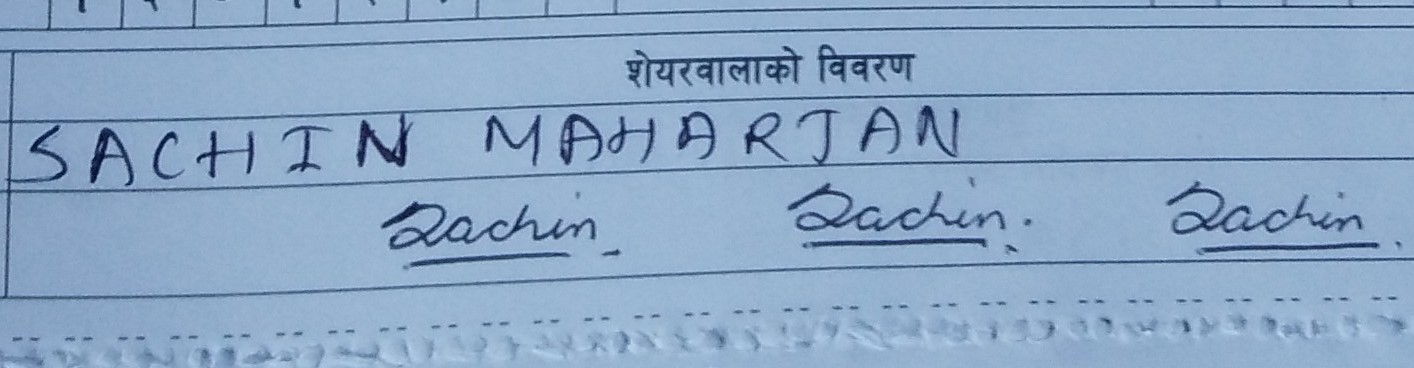 शेयरवालाको विवरण
SACHIN MAHARJAN
Sachin. Sachin. Sachin.